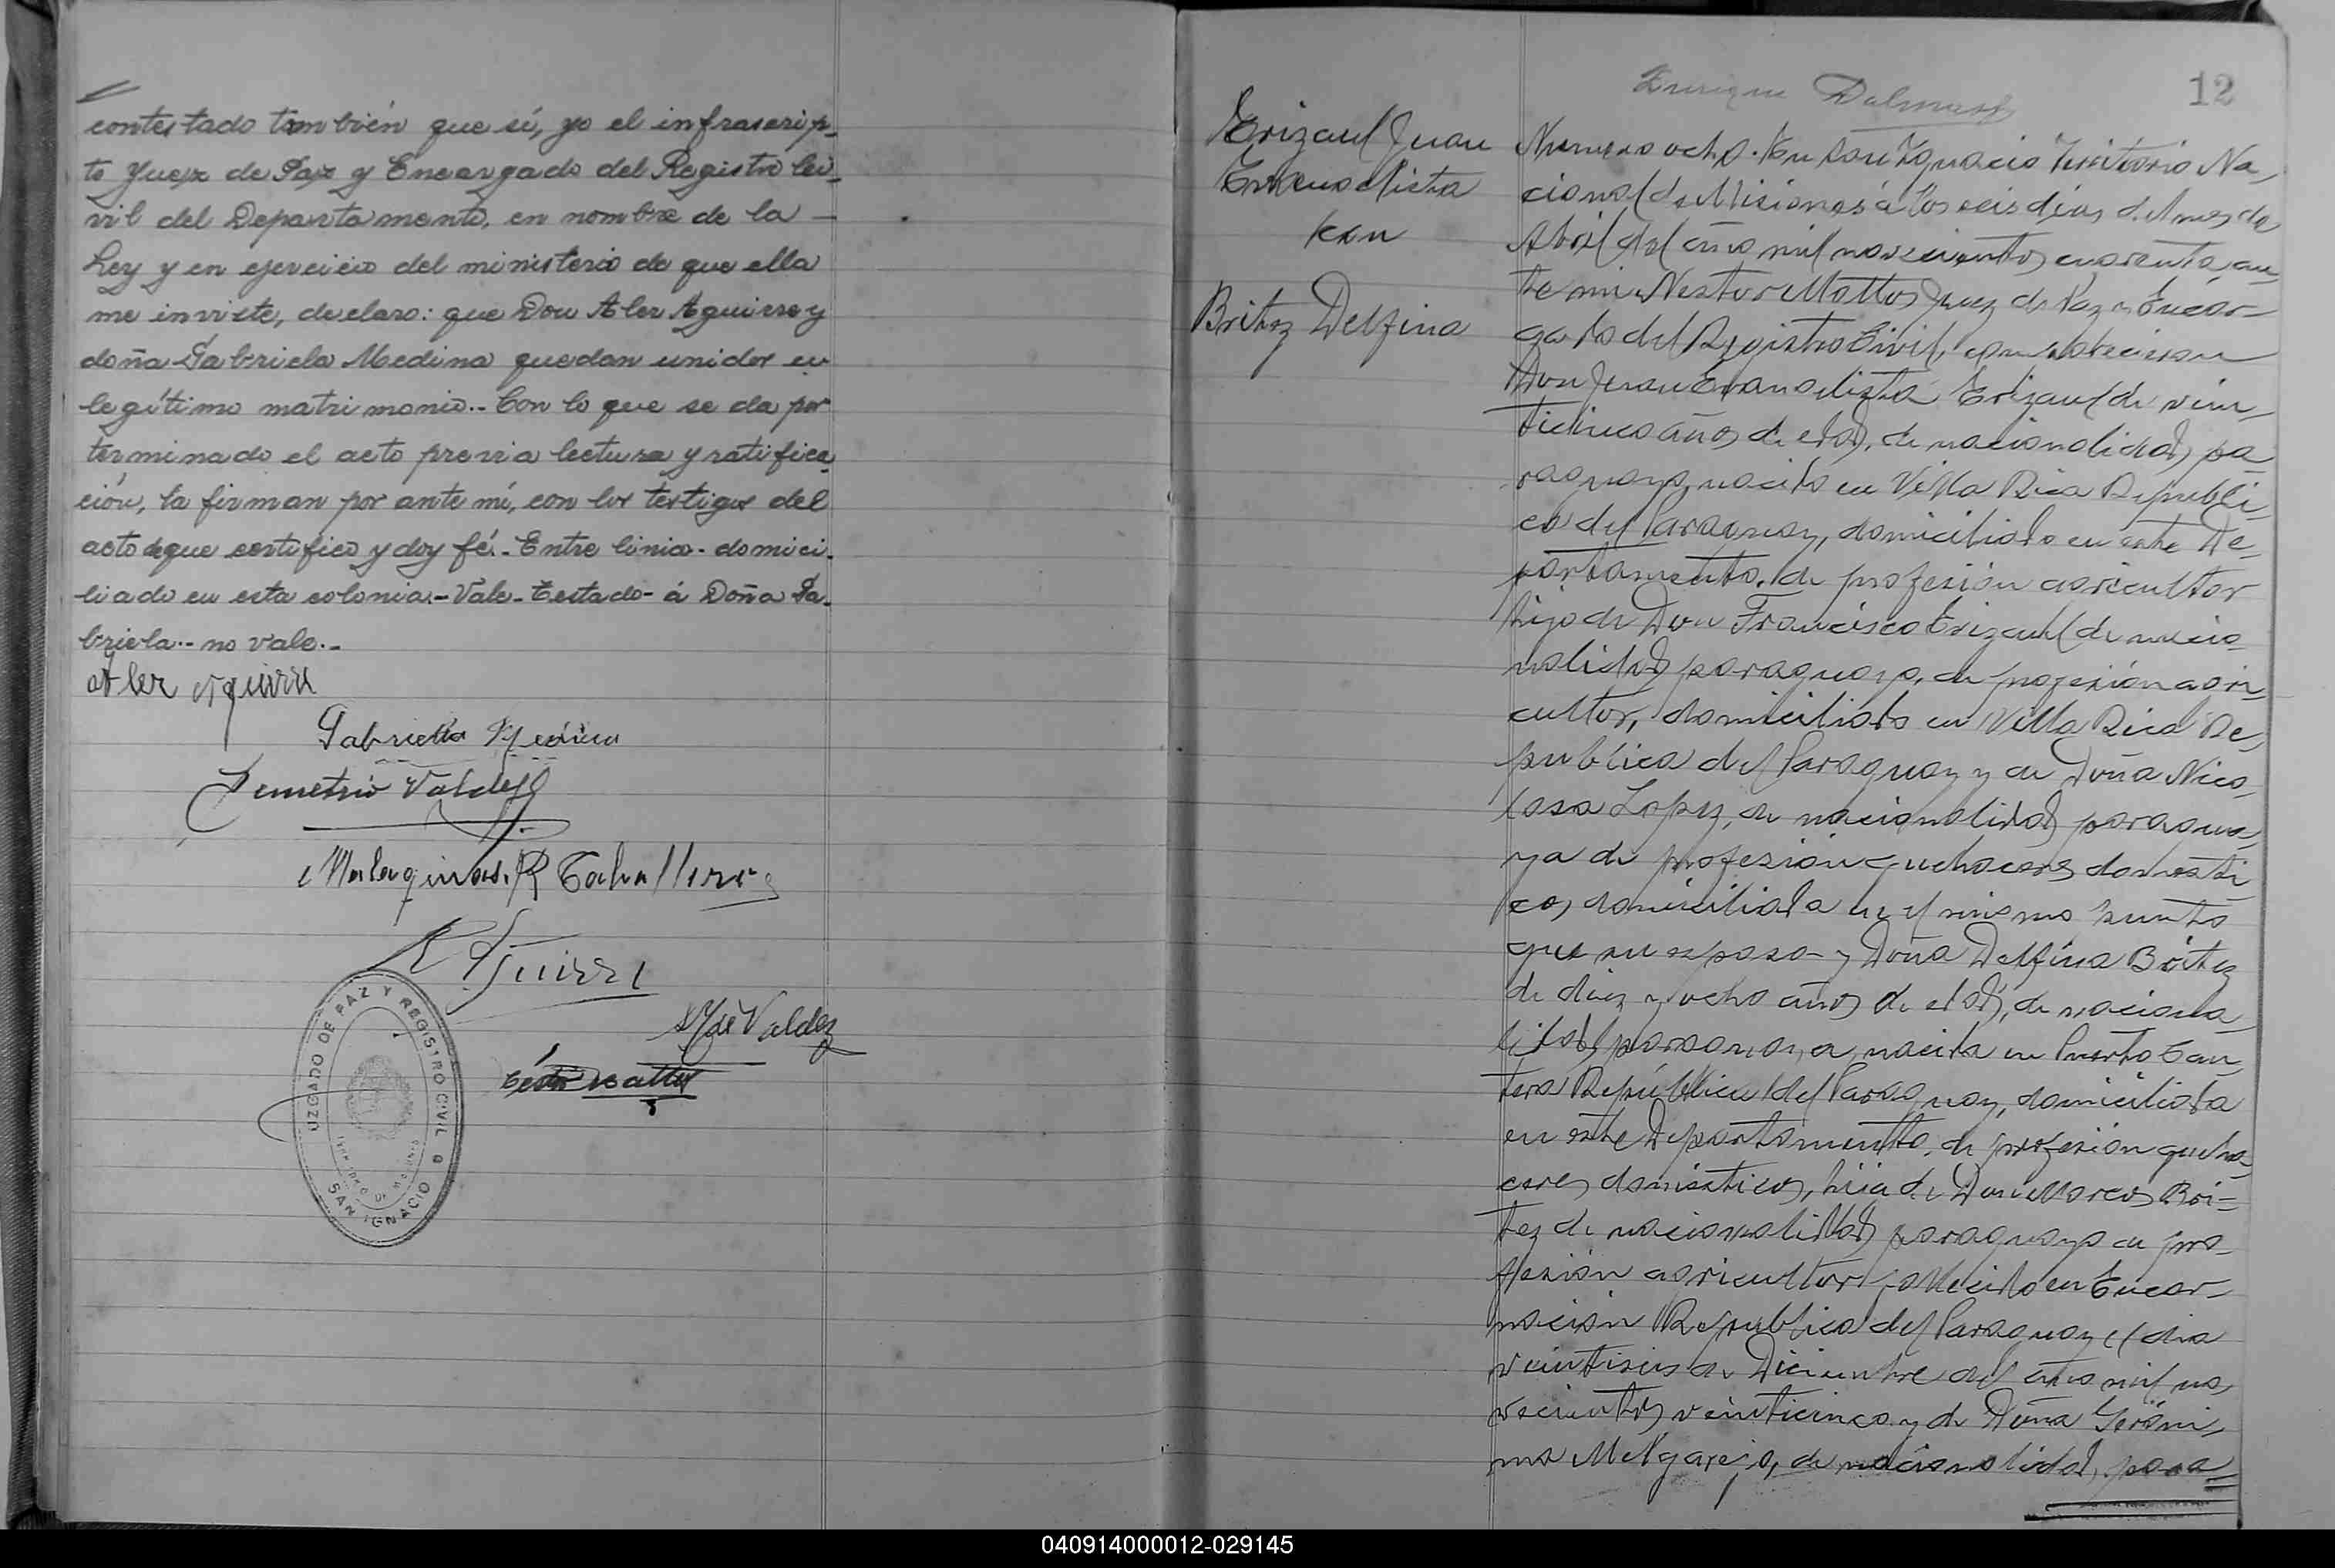 contestado también que sí, yo el infrascrip-
to Juez de Paz y Encargado del Registro Ci-
vil del Departamento, en nombre de la —
Ley y en ejercicio del ministerio de que ella
me inviste, declaro: que Don Aler Aguirre y
doña Gabriela Medina quedan unidos en
legítimo matrimonio.- Con lo que se da por
terminado el acto previa lectura y ratifica-
ción, la firman por ante mí, con los testigos del
acto de que certifico y doy fé.- Entre linias- domici-
liado en esta colonia.- Vale- Testado- á Doña Ga-
briela.- no vale.-
Aler Aguirre
Gabriella Medina
Demetrio Valdez
Malaquias R Caballero
R Aguirre
de Valdez
JUZGADO DE PAZ Y REGISTRO CIVIL
SAN IGNACIO
12
Enrique Dalmast
Erizaul Juan
Evangelista
con
Britez Delfina
Numero ocho. En San Ignacio Territorio Na-
cional de Misiones á los seis dias del mes de
Abril del año mil novecientos cuarenta, an-
te mi Nestor Mattos Juez de Paz y Encar-
gado del Registro Civil, comparecieron
Don Juan Evangelista Erizaul de vein-
ticinco años de edad, de nacionalidad pa-
raguaya, nacido en Villa Rica Republi-
ca del Paraguay, domiciliado en este De-
partamento, de profesión agricultor
hijo de Don Francisco Erizaul de nacio-
nalidad paraguaya, de profesión agri-
cultor, domiciliado en Villa Rica Re-
publica del Paraguay y de Doña Nico-
lasa Lopez, de nacionalidad paragua-
ya de profesión quehaceres domesti
cos, domiciliada en el mismo punto
que su esposo - y Doña Delfina Britez
de diez y ocho años de edad, de naciona-
lidad paraguaya, nacida en Puerto Can-
tera República del Paraguay, domiciliada
en este Departamento, de profesión queha-
ceres domésticos, hija de Don Marcos Bri-
tez de nacionalidad paraguaya de pro-
fesión agricultor fallecido en Encar-
nación Republica del Paraguay el dia
veintiseis de Diciembre del año mil no-
vecientos veinticinco y de Doña Geróni-
ma Melgarejo, de nacionalidad para-
040914000012-029145